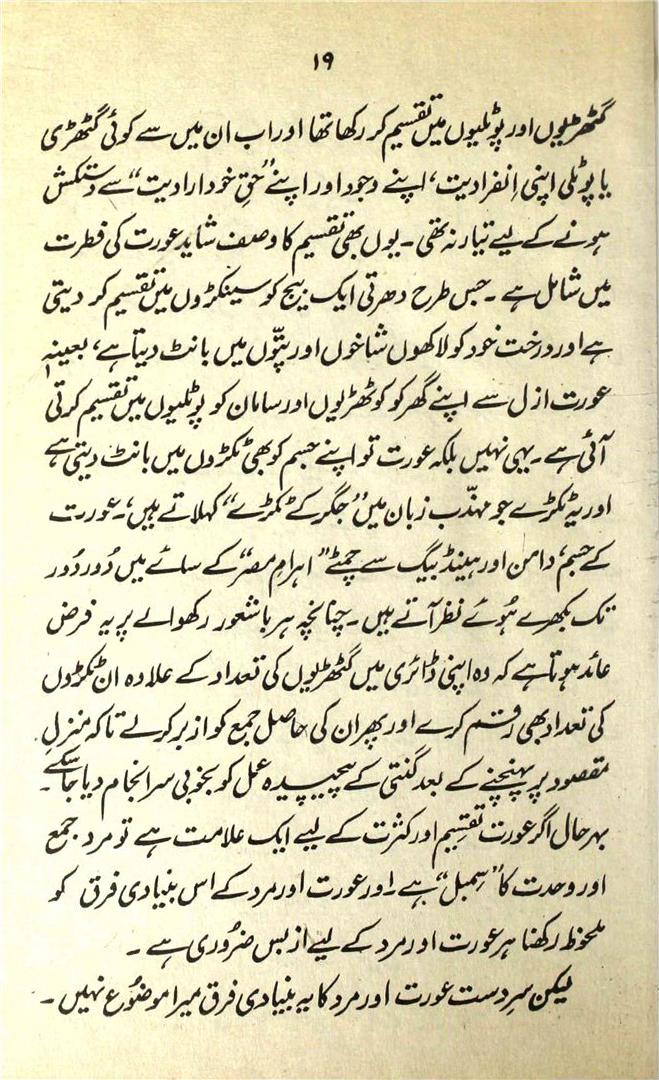 ۱۹
گٹھڑیوں اور پوٹلیوں میں تقسیم کر رکھا تھا اور اب ان میں سے کوئی گٹھڑی
یا پوٹلی اپنی اِنفرادیت، اپنے وجود اور اپنے ”حقِ خود ارادیت“ سے دستکش
ہونے کے لیے تیار نہ تھی۔ یوں بھی تقسیم کا وصف شاید عورت کی فطرت
میں شامل ہے۔ جس طرح دھرتی ایک بیج کو سینکڑوں میں تقسیم کر دیتی
ہے اور درخت خود کو لاکھوں شاخوں اور پتّوں میں بانٹ دیتا ہے، بعینہٖ
عورت ازل سے اپنے گھر کو کوٹھڑیوں اور سامان کو پوٹلیوں میں تقسیم کرتی
آئی ہے۔ یہی نہیں بلکہ عورت تو اپنے جسم کو بھی ٹکڑوں میں بانٹ دیتی ہے
اور یہ ٹکڑے جو مہذّب زبان میں ”جگر کے ٹکڑے“ کہلاتے ہیں، عورت
کے جسم، دامن اور ہینڈ بیگ سے چمٹے ”اہرامِ مصر“ کے سائے میں دُور دُور
تک بکھرے ہُوئے نظر آتے ہیں۔ چنانچہ ہر باشعور رکھوالے پر یہ فرض
عائد ہوتا ہے کہ وہ اپنی ڈائری میں گٹھڑیوں کی تعداد کے علاوہ ان ٹکڑوں
کی تعداد بھی رقم کرے اور پھر ان کی حاصل جمع کو ازبر کر لے تاکہ منزلِ
مقصود پر پہنچنے کے بعد گنتی کے پیچیدہ عمل کو بخوبی سرانجام دیا جا سکے۔
بہرحال اگر عورت تقسیم اور کثرت کے لیے ایک علامت ہے تو مرد جمع
اور وحدت کا ”سمبل“ ہے۔ اور عورت اور مرد کے اس بنیادی فرق کو
ملحوظ رکھنا ہر عورت اور مرد کے لیے از بس ضرُوری ہے۔
لیکن سرِدست عورت اور مرد کا یہ بنیادی فرق میرا موضوُع نہیں۔